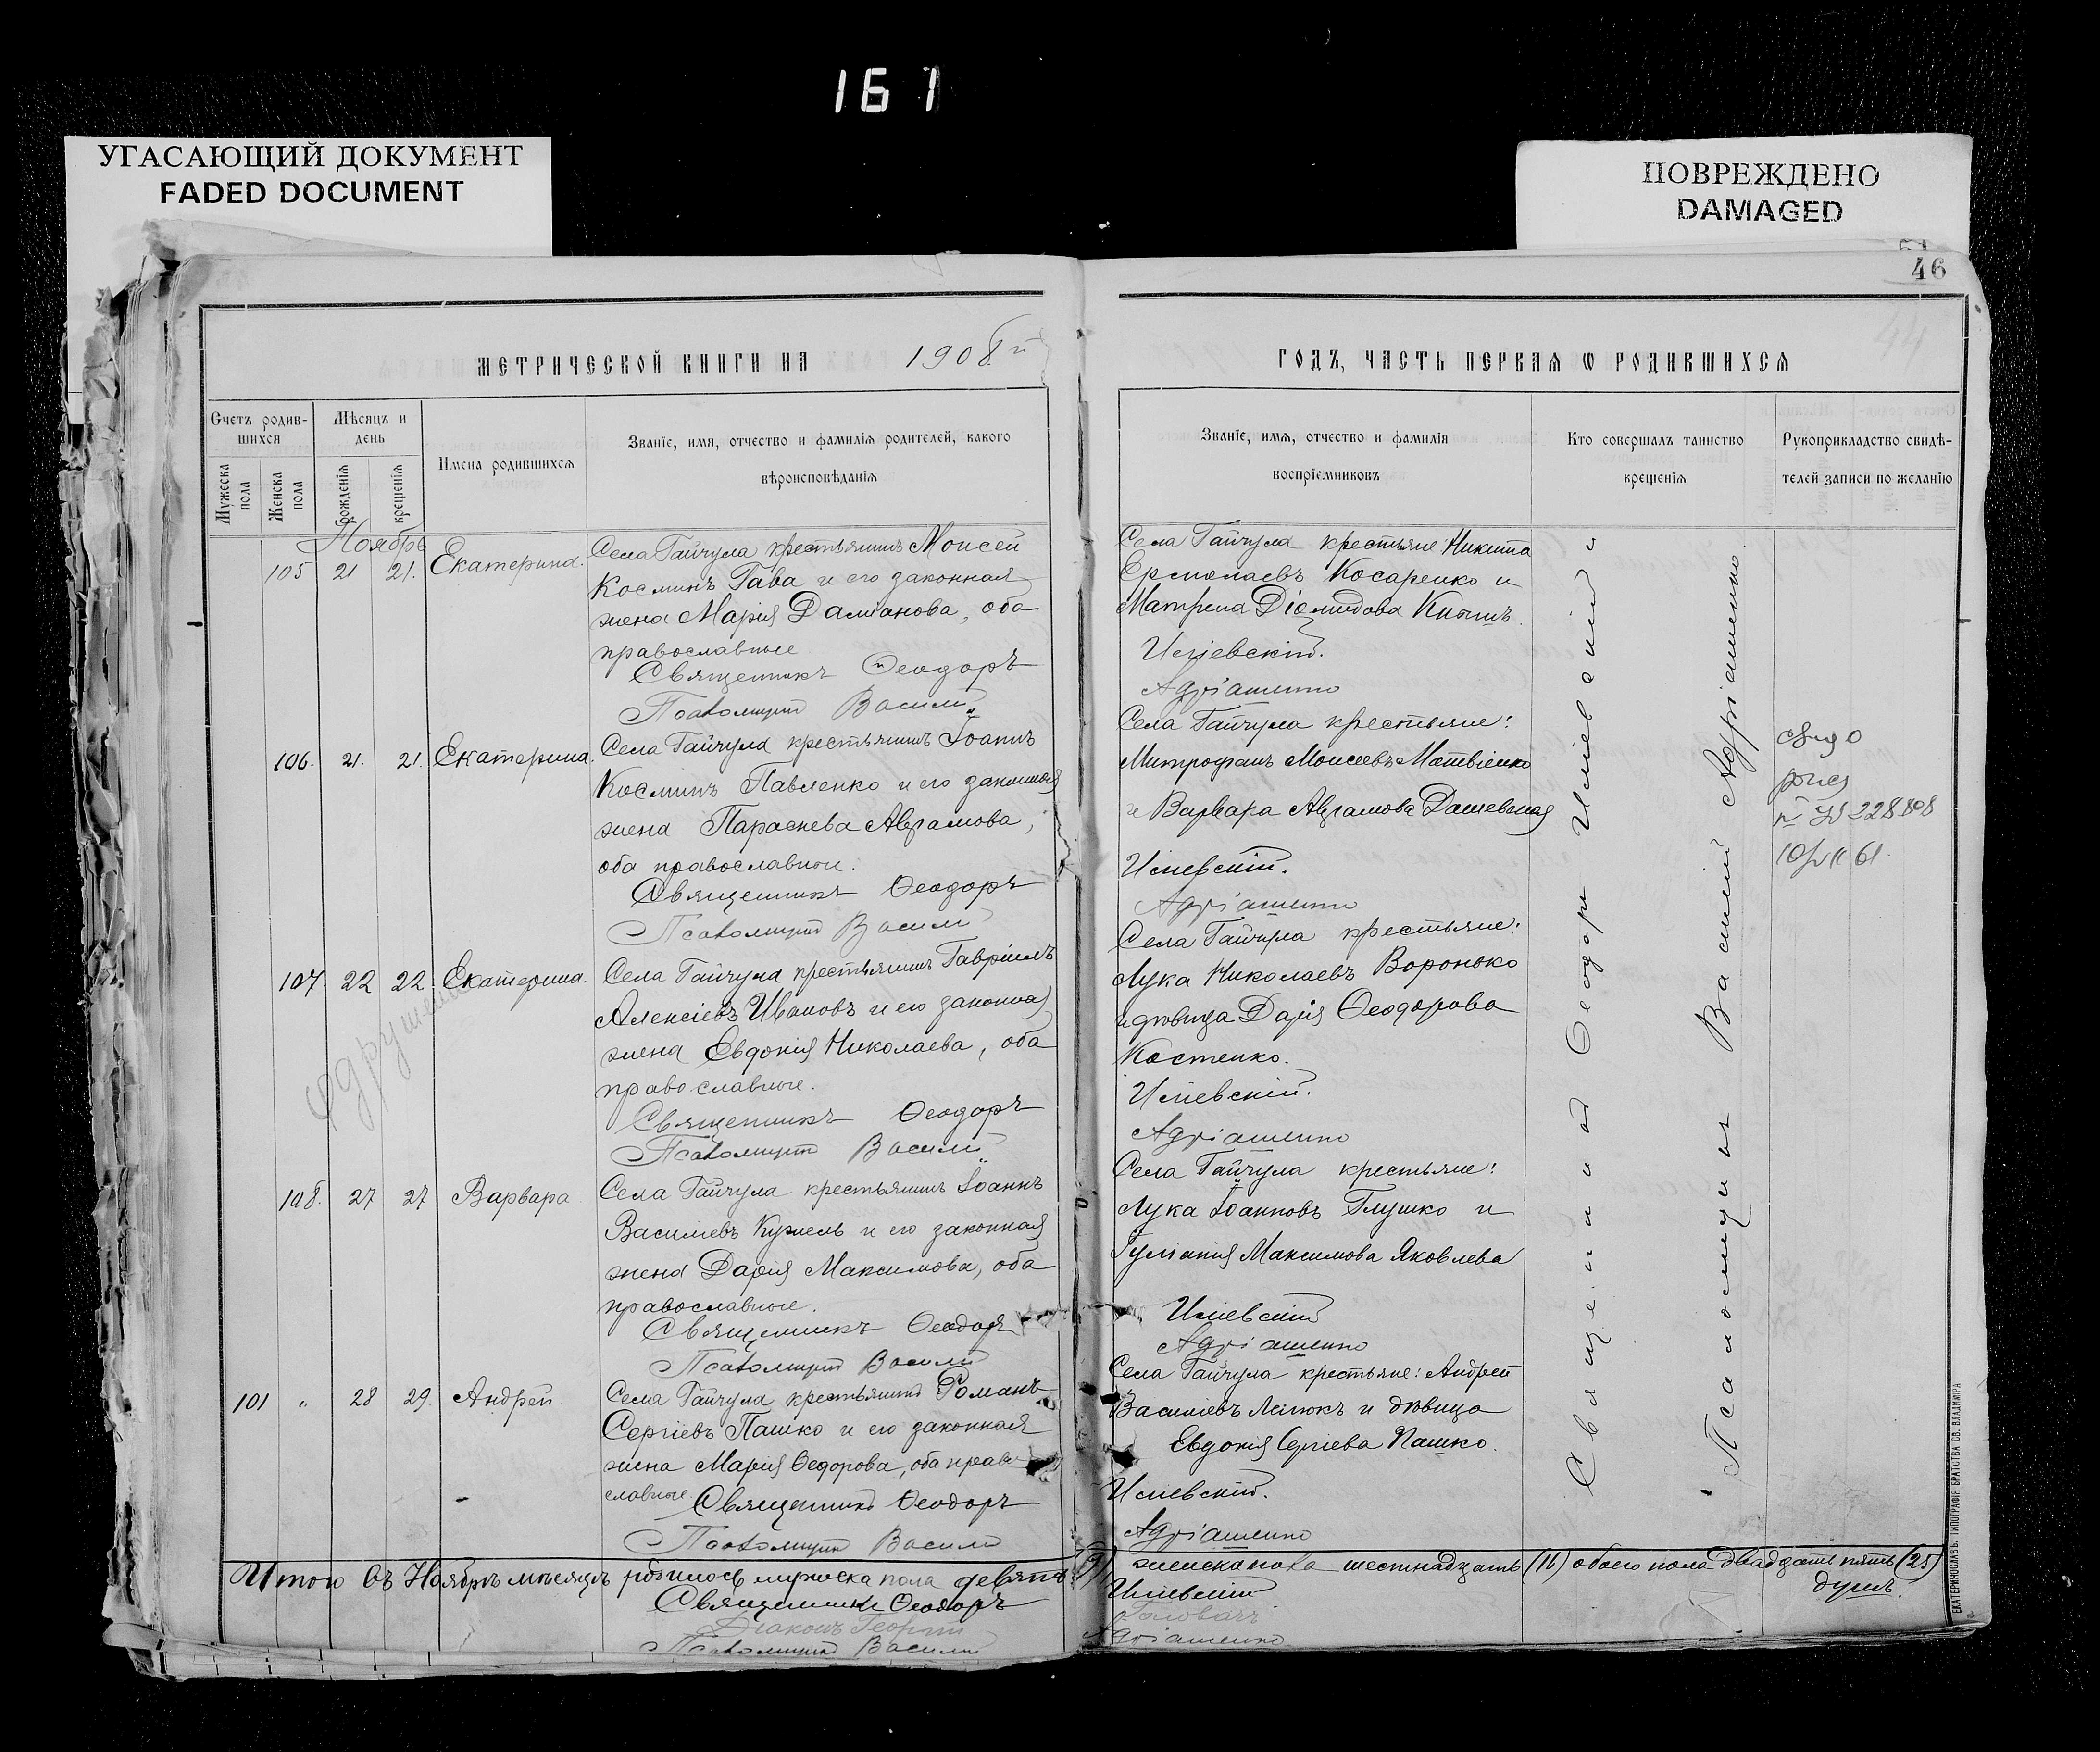 161
УГАСАЮЩИЙ ДОКУМЕНТ
FADED DOCUMENT
ПОВРЕЖДЕНО
DAMAGED
46
44
МЕТРИЧЕСКОЙ КНИГИ НА 1908й
Счетъ родив-
шихся
Мужеска
пола
Женска
пола
Мѣсяцъ и
день
рожденія
крещенія
Имена родившихся
Званіе, имя, отчество и фамилія родителей, какого
вѣроисповѣданія
Ноябрь
105 21 21. Екатерина.
Села Гайчула крестьянинъ Моисей
Косминъ Гава и его законная
жена Марія Даміанова, оба
православные
Священникъ Ѳеодоръ
Псаломщикъ Василій
106. 21. 21. Екатерина.
Села Гайчула крестьянинъ Іоаннъ
Косминъ Павленко и его законная
жена Параскева Авраамова,
оба православные.
Священникъ Ѳеодоръ
Псаломщикъ Василій
107. 22 22 Екатерина.
Села Гайчула крестьянинъ Гавріилъ
Алексіевъ Ивановъ и его законная
жена Евдокія Николаева, оба
православные.
Священникъ Ѳеодоръ
Псаломщикъ Василій
108. 27 27 Варвара
Села Гайчула крестьянинъ Іоаннъ
Василіевъ Кужель и его законная
жена Дарія Максимова, оба
православные.
Священникъ Ѳеодоръ
Псаломщикъ Василій
101 " 28 29. Андрей.
Села Гайчула крестьянинъ Романъ
Сергіевъ Пашко и его законная
жена Марія Ѳеодорова, оба право
славные
Священникъ Ѳеодоръ
Псаломщикъ Василій
Итого въ Ноябрѣ мѣсяцѣ родилось мужеска пола девять (9) женска пола шестнадцать (16) обоего пола двадцать пять (25)
душъ.
Священникъ Ѳеодоръ Исіевскій
Діаконъ Георгій Головачъ
Псаломщикъ Василій Адріашенко
ГОДЪ, ЧАСТЬ ПЕРВАЯ Ѡ РОДИВШИХСЯ
Званіе, имя, отчество и фамилія
воспріемниковъ
Кто совершалъ таинство
крещенія
Рукоприкладство свидѣ-
телей записи по желанію
Села Гайчула крестьяне: Никита
Ермолаевъ Косаренко и
Матрена Діомидова Книшъ.
Исіевскій.
Адріашенко
Села Гайчула крестьяне:
Митрофанъ Моисеевъ Матвіенко
и Варвара Авраамова Дашевская
Исіевскій.
Адріашенко
Села Гайчула крестьяне:
Лука Николаевъ Воронько
и дѣвица Дарія Ѳеодорова
Костенко.
Исіевскій.
Адріашенко
Села Гайчула крестьяне:
Лука Іоанновъ Глушко и
Іуліанія Максимова Яковлева
Исіевскій
Адріашенко
Села Гайчула крестьяне: Андрей
Василіевъ Леілюкъ и дѣвица
Евдокія Сергіева Пашко.
Исіевскій.
Адріашенко
Священникъ Ѳеодоръ Исіевскій и
Псаломщикъ Василій Адріашенко.
228808
61.
ЕКАТЕРИНОСЛАВЪ. ТИПОГРАФІЯ БРАТСТВА СВ. ВЛАДИМІРА